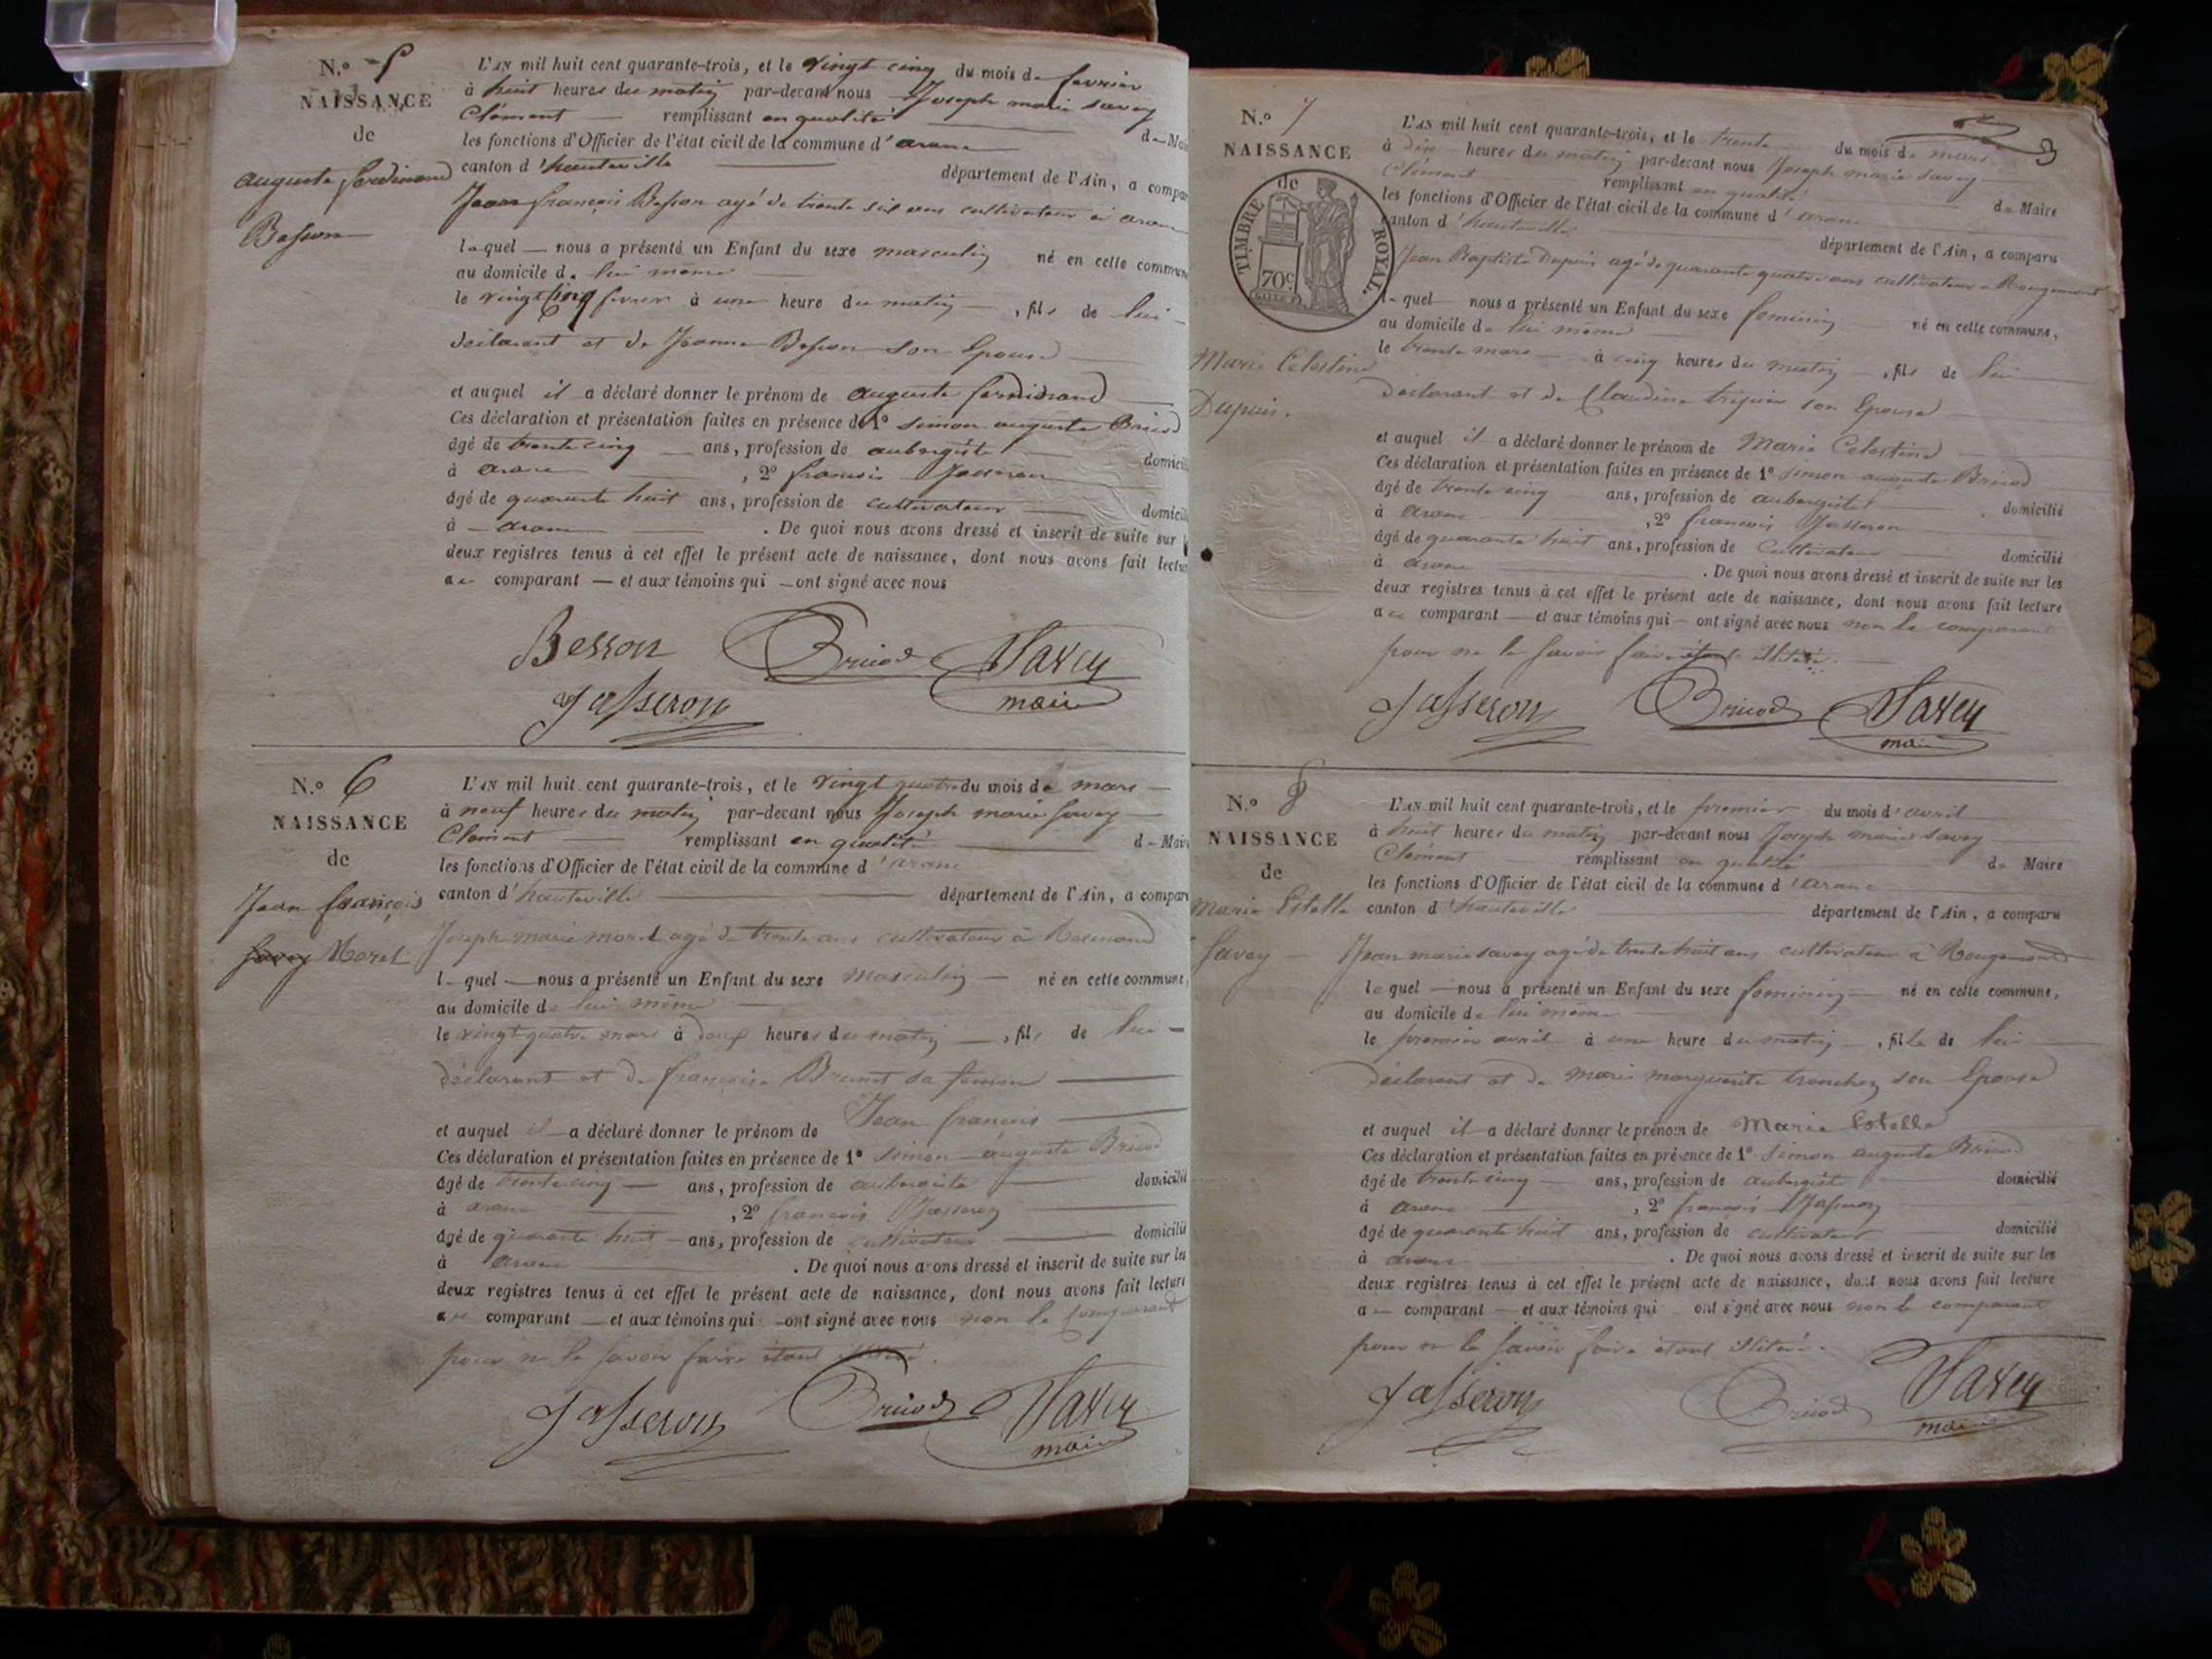 N.º 5
NAISSANCE
de
auguste ferdinand
Besson
L'AN mil huit cent quarante-trois, et le vingt cinq du mois de fevrier
à huit heures du matin par-devant nous Joseph marie savey
Clément remplissant en qualité de Maire
les fonctions d'Officier de l'état civil de la commune d'aranc
canton d'hauteville département de l'Ain, a compar
Jean françois Besson agé de trente six ans cultivateur à aranc
lequel nous a présenté un Enfant du sexe masculin né en cette commune
au domicile de lui meme
le vingt cinq fevrier à une heure du matin, fils de lui
déclarant et de Jeanne Besson son Epouse
et auquel il a déclaré donner le prénom de auguste ferdinand
Ces déclaration et présentation faites en présence de 1º simon auguste Briod
âgé de trente cinq ans, profession de aubergiste domicilié
à aranc, 2º francois Jasseron
âgé de quarante huit ans, profession de cultivateur domicilié
à aranc. De quoi nous avons dressé et inscrit de suite sur les
deux registres tenus à cet effet le présent acte de naissance, dont nous avons fait lecture
au comparant et aux témoins qui ont signé avec nous
Besson Briod Savey
Jasseron maire
N.º 6
NAISSANCE
de
Jean françois
Savey Morel
L'AN mil huit cent quarante-trois, et le vingt quatre du mois de mars
à neuf heures du matin par-devant nous Joseph marie Savey
Clément remplissant en qualité de Maire
les fonctions d'Officier de l'état civil de la commune d'aranc
canton d'hauteville département de l'Ain, a comparu
Joseph marie morel agé de trente ans cultivateur à
lequel nous a présenté un Enfant du sexe masculin né en cette commune,
au domicile de lui même
le vingt quatre mars à deux heures du matin, fils de lui
déclarant et de françoise Brunet sa femme
et auquel il a déclaré donner le prénom de Jean françois
Ces déclaration et présentation faites en présence de 1º simon auguste Briod
âgé de trente cinq ans, profession de aubergiste domicilié
à aranc, 2º francois Jasseron
âgé de quarante huit ans, profession de cultivateur domicilié
à aranc. De quoi nous avons dressé et inscrit de suite sur les
deux registres tenus à cet effet le présent acte de naissance, dont nous avons fait lecture
au comparant et aux témoins qui ont signé avec nous non le comparant
pour ne le savoir faire étant
Jasseron Briod Savey
maire
N.º 7
NAISSANCE
de
TIMBRE ROYAL.
70c
Marie Celestine
Dupuis.
L'AN mil huit cent quarante-trois, et le trente du mois de mars
à dix heures du matin par-devant nous Joseph marie savey
Clément remplissant en qualité de Maire
les fonctions d'Officier de l'état civil de la commune d'aranc
canton d'hauteville département de l'Ain, a comparu
Jean Baptiste Dupuis agé de quarante quatre ans cultivateur à Rougemont
lequel nous a présenté un Enfant du sexe feminin né en cette commune,
au domicile de lui même
le trente mars à cinq heures du matin, fils de lui
déclarant et de Claudine son Epouse
et auquel il a déclaré donner le prénom de Marie Celestine
Ces déclaration et présentation faites en présence de 1º simon auguste Briod
âgé de trente cinq ans, profession de aubergiste domicilié
à aranc, 2º francois Jasseron
âgé de quarante huit ans, profession de Cultivateur domicilié
à aranc. De quoi nous avons dressé et inscrit de suite sur les
deux registres tenus à cet effet le présent acte de naissance, dont nous avons fait lecture
au comparant et aux témoins qui ont signé avec nous non le comparant
pour ne le savoir faire étant illitéré.
Jasseron Briod Savey
maire
N.º 8
NAISSANCE
de
Marie Estelle
Savey
L'AN mil huit cent quarante-trois, et le premier du mois d'avril
à huit heures du matin par-devant nous Joseph marie savey
Clément remplissant en qualité de Maire
les fonctions d'Officier de l'état civil de la commune d'aranc
canton d'hauteville département de l'Ain, a comparu
Jean marie savey agé de trente huit ans cultivateur à Rougemont
lequel nous a présenté un Enfant du sexe feminin né en cette commune,
au domicile de lui même
le premier avril à une heure du matin, fille de lui
déclarant et de marie marguerite son Epouse
et auquel il a déclaré donner le prénom de Marie Estelle
Ces déclaration et présentation faites en présence de 1º simon auguste Briod
âgé de trente cinq ans, profession de aubergiste domicilié
à aranc, 2º francois Jasseron
âgé de quarante huit ans, profession de cultivateur domicilié
à aranc. De quoi nous avons dressé et inscrit de suite sur les
deux registres tenus à cet effet le présent acte de naissance, dont nous avons fait lecture
au comparant et aux témoins qui ont signé avec nous non le comparant
pour ne le savoir faire étant illitéré.
Jasseron Briod Savey
maire